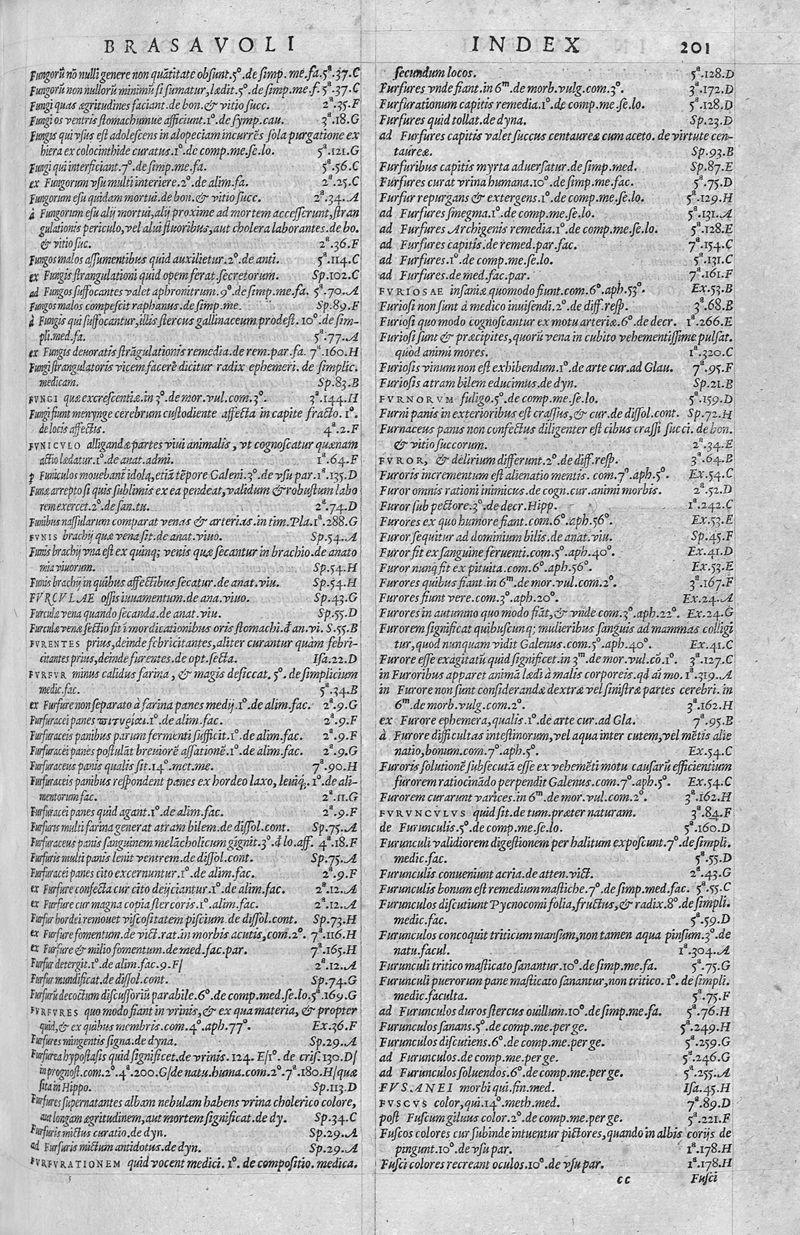 BRASAVOLI
Fungorũ nõ nulli genere non quãtitate obsunt. 5°. de simp. me. fa. 5ª.37.C
Fungorũ non nullorũ minimũ si sumatur, lædit. 5°. de simp. me. f. 5ª.37.C
Fungi quas ægritudines faciant. de bon. & vitio succ. 2ª.35.F
Fungi os ventris stomachumue afficiunt. 1°. de symp. cau. 3ª.18.G
Fungis qui vsus est adolescens in alopeciam incurrẽs sola purgatione ex
hiera ex colocinthide curatus. 1°. de comp. me. se. lo. 5ª.121.G
Fungi qui interficiant. 7°. de simp. me. fa. 5ª.56.C
ex Fungorum vsu multi interiere. 2°. de alim. fa. 2ª.25.C
Fungorum esu quidam mortui. de bon. & vitio succ. 2ª.34.A
à Fungorum esu alij mortui, alij proxime ad mortem accesserunt, stran
gulationis periculo, vel alui fluoribus, aut cholera laborantes. de bo.
& vitio suc. 2ª.36.F
Fungos malos assumentibus quid auxilietur. 2°. de anti. 5ª.114.C
ex Fungis strangulationi quid opem ferat. secretorum. Sp.102.C
ad Fungos suffocantes valet aphronitrum. 9°. de simp. me. fa. 5ª.70.A
Fungos malos compescit raphanus. de simp. me. Sp.89.F
à Fungis qui suffocantur, illis stercus gallinaceum prodest. 10°. de sim-
pli. med. fa. 5ª.77.A
ex Fungis deuoratis strãgulationis remedia. de rem. par. fa. 7ª.160.H
Fungi strangulatoris vicem facere dicitur radix ephemeri. de simplic.
medicam. Sp.83.B
FVNGI quæ excrescentiæ. in 3°. de mor. vul. com. 3°. 3ª.144.H
Fungi fiunt menynge cerebrum custodiente affecta in capite fracto. 1°.
de locis affectis. 4ª.2.F
FVNICVLO alligandæ partes viui animalis, vt cognoscatur quænam
actio lædatur. 1°. de anat. admi. 1ª.64.F
p Funiculos mouebant idola, etiã tẽpore Galeni. 3°. de vsu par. 1ª.135.D
Funi arrepto si quis sublimis ex ea pendeat, validum & robustum labo
rem exercet. 2°. de san. tu. 2ª.74.D
Funibus nassularum comparat venas & arterias. in tim. Pla. 1ª.288.G
FVNIS brachij quæ vena sit. de anat. viuo. Sp.54.A
Funis brachij vna est ex quinq; venis quæ secantur in brachio. de anato
mia viuorum. Sp.54.H
Funis brachij in quibus affectibus secatur. de anat. viu. Sp.54.H
FVRCVLAE ossis iuuamentum. de ana. viuo. Sp.43.G
Furculæ vena quando secanda. de anat. viu. Sp.55.D
Furculæ venæ sectio fit ĩ mordicationibus oris stomachi. d̃ an. vi. S.55.B
FVRENTES prius, deinde febricitantes, aliter curantur quàm febri-
citantes prius, deinde furentes. de opt. secta. Isa.22.D
FVRFVR minus calidus farina, & magis desiccat. 5°. de simplicium
medic. fac. 5ª.34.B
ex Furfure non separato à farina panes medij. 1°. de alim. fac. 2ª.9.G
Furfuracei panes πιτυρίαι. 1°. de alim. fac. 2ª.9.F
Furfuraceis panibus parum fermenti sufficit. 1°. de alim. fac. 2ª.9.F
Furfuracei panes postulãt breuiorẽ assationẽ. 1°. de alim. fac. 2ª.9.G
Furfuraceus panis qualis sit. 14°. met. me. 7ª.90.H
Furfuraceis panibus respondent panes ex hordeo laxo, leuiq;. 1°. de ali-
mentorum fac. 2ª.11.G
Furfuracei panes quid agant. 1°. de alim. fac. 2ª.9.F
Furfuris multi farina generat atram bilem. de dissol. cont. Sp.75.A
Furfuraceus panis sanguinem melãcholicum gignit. 3°. d̃ lo. aff. 4ª.18.F
Furfuris multi panis lenit ventrem. de dissol. cont. Sp.75.A
Furfuracei panes cito excernuntur. 1°. de alim. fac. 2ª.9.F
ex Furfure confecta cur cito deijciantur. 1°. de alim. fac. 2ª.12.A
ex Furfure cur magna copia stercoris. 1°. alim. fac. 2ª.12.A
Furfur hordei remouet viscositatem piscium. de dissol. cont. Sp.73.H
ex Furfure fomentum. de vict. rat. in morbis acutis, com. 2°. 7ª.116.H
ex Furfure & milio fomentum. de med. fac. par. 7ª.165.H
Furfur detergit. 1°. de alim. fac. 9.F/ 2ª.12.A
Furfur mundificat. de dissol. cont. Sp.74.G
Furfurũ decoctum discussoriũ parabile. 6°. de comp. med. se. lo. 5ª.169.G
FVRFVRES quo modo fiant in vrinis, & ex qua materia, & propter
quid, & ex quibus membris. com. 4°. aph. 77°. Ex.36.F
Furfures mingentis signa. de dyna. Sp.29.A
Furfurea hypostasis quid significet. de vrinis. 124.E/1°. de cris. 130.D/
in prognost. com. 2°. 4ª.200.G/de natu. huma. com. 2°. 7ª.180.H/quæ
sita in Hippo. Sp.113.D
Furfures supernatantes albam nebulam habens vrina cholerico colore,
aut longam ægritudinem, aut mortem significat. de dy. Sp.34.C
Furfuris mictus curatio. de dyn. Sp.29.A
ad Furfuris mictum antidotus. de dyn. Sp.29.A
FVRFVRATIONEM quid vocent medici. 1°. de compositio. medica.
INDEX 201
secundum locos. 5ª.128.D
Furfures vnde fiant. in 6ᵐ. de morb. vulg. com. 3°. 3ª.172.D
Furfurationum capitis remedia. 1°. de comp. me. se. lo. 5ª.128.D
Furfures quid tollat. de dyna. Sp.23.D
ad Furfures capitis valet succus centaureæ cum aceto. de virtute cen-
taureæ. Sp.93.B
Furfuribus capitis myrta aduersatur. de simp. med. Sp.87.E
Furfures curat vrina humana. 10°. de simp. me. fac. 5ª.75.D
Furfur repurgans & extergens. 1°. de comp. me. se. lo. 5ª.129.H
ad Furfures smegma. 1°. de comp. me. se. lo. 5ª.131.A
ad Furfures Archigenis remedia. 1°. de comp. me. se. lo. 5ª.128.E
ad Furfures capitis. de remed. par. fac. 7ª.154.C
ad Furfures. 1°. de comp. me. se. lo. 5ª.131.C
ad Furfures. de med. fac. par. 7ª.161.F
FVRIOSAE insaniæ quomodo fiunt. com. 6°. aph. 53°. Ex.53.B
Furiosi non sunt à medico inuisendi. 2°. de diff. resp. 3ª.68.B
Furiosi quo modo cognoscantur ex motu arteriæ. 6°. de decr. 1ª.266.E
Furiosi sunt & præcipites, quorũ vena in cubito vehementissime pulsat.
quòd animi mores. 1ª.320.C
Furiosis vinum non est exhibendum. 1°. de arte cur. ad Glau. 7ª.95.F
Furiosis atram bilem educimus. de dyn. Sp.21.B
FVRNORVM fuligo. 5°. de comp. me. se. lo. 5ª.159.D
Furni panis in exterioribus est crassus, & cur. de dissol. cont. Sp.72.H
Furnaceus panis non confectus diligenter est cibus crassi succi. de bon.
& vitio succorum. 2ª.34.E
FVROR, & delirium differunt. 2°. de diff. resp. 3ª.64.B
Furoris incrementum est alienatio mentis. com. 7°. aph. 5°. Ex.54.C
Furor omnis rationi inimicus. de cogn. cur. animi morbis. 2ª.52.D
Furor sub pectore. 3°. de decr. Hipp. 1ª.242.C
Furores ex quo humore fiant. com. 6°. aph. 56°. Ex.53.E
Furor sequitur ad dominium bilis. de anat. viu. Sp.45.F
Furor fit ex sanguine feruenti. com. 5°. aph. 40°. Ex.41.D
Furor nunq̃ fit ex pituita. com. 6°. aph. 56°. Ex.53.E
Furores quibus fiant. in 6ᵐ. de mor. vul. com. 2°. 3ª.167.F
Furores fiunt vere. com. 3°. aph. 20°. Ex.24.A
Furores in autumno quo modo fiãt, & vnde. com. 3°. aph. 22°. Ex.24.G
Furorem significat quibuscunq; mulieribus sanguis ad mammas colligi
tur, quod nunquam vidit Galenus. com. 5°. aph. 40°. Ex.41.C
Furore esse exagitatũ quid significet. in 3ᵐ. de mor. vul. cõ. 1°. 3ª.127.C
in Furoribus apparet animã lædi à malis corporeis. qd̃ ai mo. 1ª.319.A
in Furore non sunt considerandæ dextræ vel sinistræ partes cerebri. in
6ᵐ. de morb. vulg. com. 2°. 3ª.162.H
ex Furore ephemera, qualis. 1°. de arte cur. ad Gla. 7ª.95.B
à Furore difficultas intestinorum, vel aqua inter cutem, vel mẽtis alie
natio, bonum. com. 7°. aph. 5°. Ex.54.C
Furoris solutionẽ subsecutã esse ex vehemẽti motu causarũ efficientium
furorem ratiocinãdo perpendit Galenus. com. 7°. aph. 5°. Ex.54.C
Furorem curarunt varices. in 6ᵐ. de mor. vul. com. 2°. 3ª.162.H
FVRVNCVLVS quid sit. de tum. præter naturam. 3ª.84.F
de Furunculis. 5°. de comp. me. se. lo. 5ª.160.D
Furunculi validiorem digestionem per halitum exposcunt. 7°. de simpli.
medic. fac. 5ª.55.D
Furunculis conueniunt acria. de atten. vict. 2ª.43.G
Furunculis bonum est remedium mastiche. 7°. de simp. med. fac. 5ª.55.C
Furunculos discutiunt Pycnocomi folia, fructus, & radix. 8°. de simpli.
medic. fac. 5ª.59.D
Furunculos concoquit triticum mansum, non tamen aqua pinsum. 3°. de
natu. facul. 1ª.304.A
Furunculi tritico masticato sanantur. 10°. de simp. me. fa. 5ª.75.G
Furunculi puerorum pane masticato sanantur, non tritico. 1°. de simpli.
medic. faculta. 5ª.75.F
ad Furunculos duros stercus ouillum. 10°. de simp. me. fa. 5ª.76.H
Furunculos sanans. 5°. de comp. me. per ge. 5ª.249.H
Furunculos discutiens. 6°. de comp. me. per ge. 5ª.259.G
ad Furunculos. de comp. me. per ge. 5ª.246.G
ad Furunculos soluendos. 6°. de comp. me. per ge. 5ª.255.A
FVSANEI morbi qui. fin. med. Isa.45.H
FVSCVS color, qui. 14°. meth. med. 7ª.89.D
post Fuscum giluus color. 2°. de comp. me. per ge. 5ª.221.F
Fuscos colores cur subinde intuentur pictores, quando in albis corijs de
pingunt. 10°. de vsu par. 1ª.178.H
Fusci colores recreant oculos. 10°. de vsu par. 1ª.178.H
cc Fusci